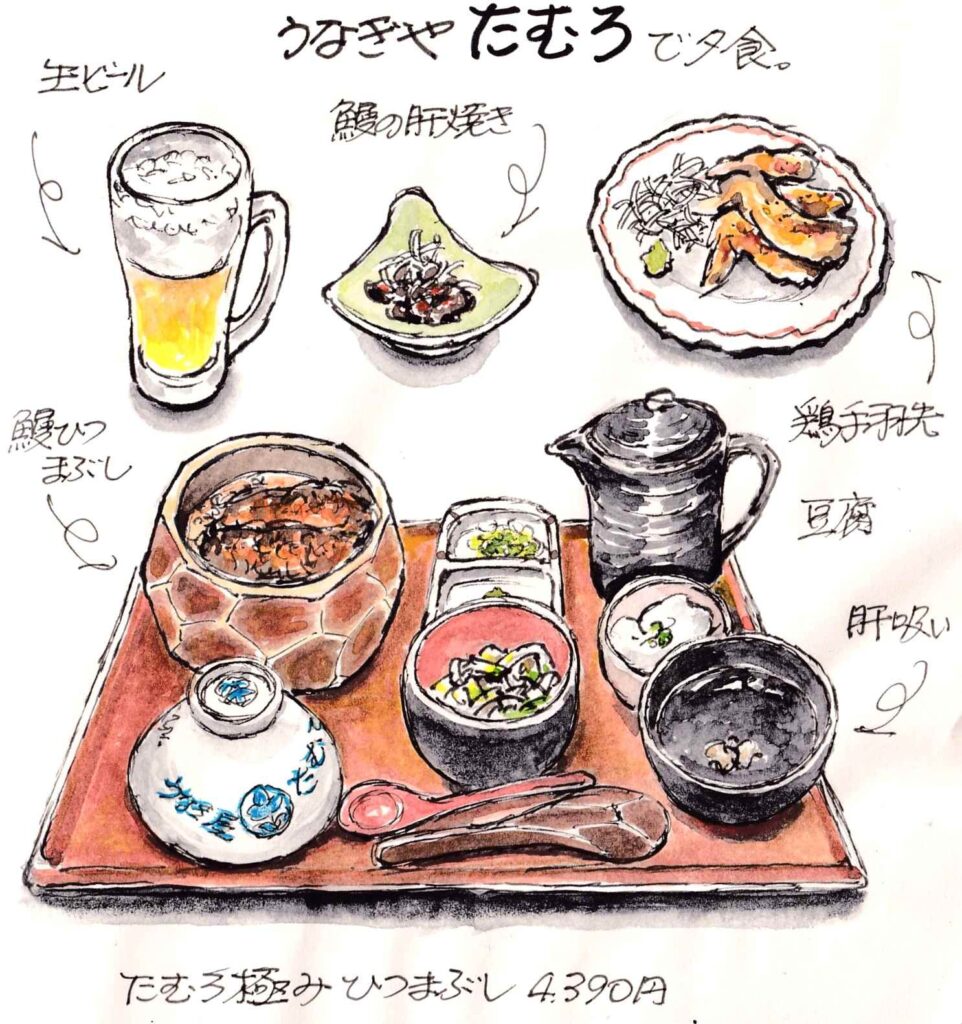 うなぎや たむろ で夕食。
生ビール
鰻の肝焼き
鶏手羽先
鰻ひつ
まぶし
豆腐
肝吸い
うなぎ屋
たむろ
たむろ極み ひつまぶし 4.390円